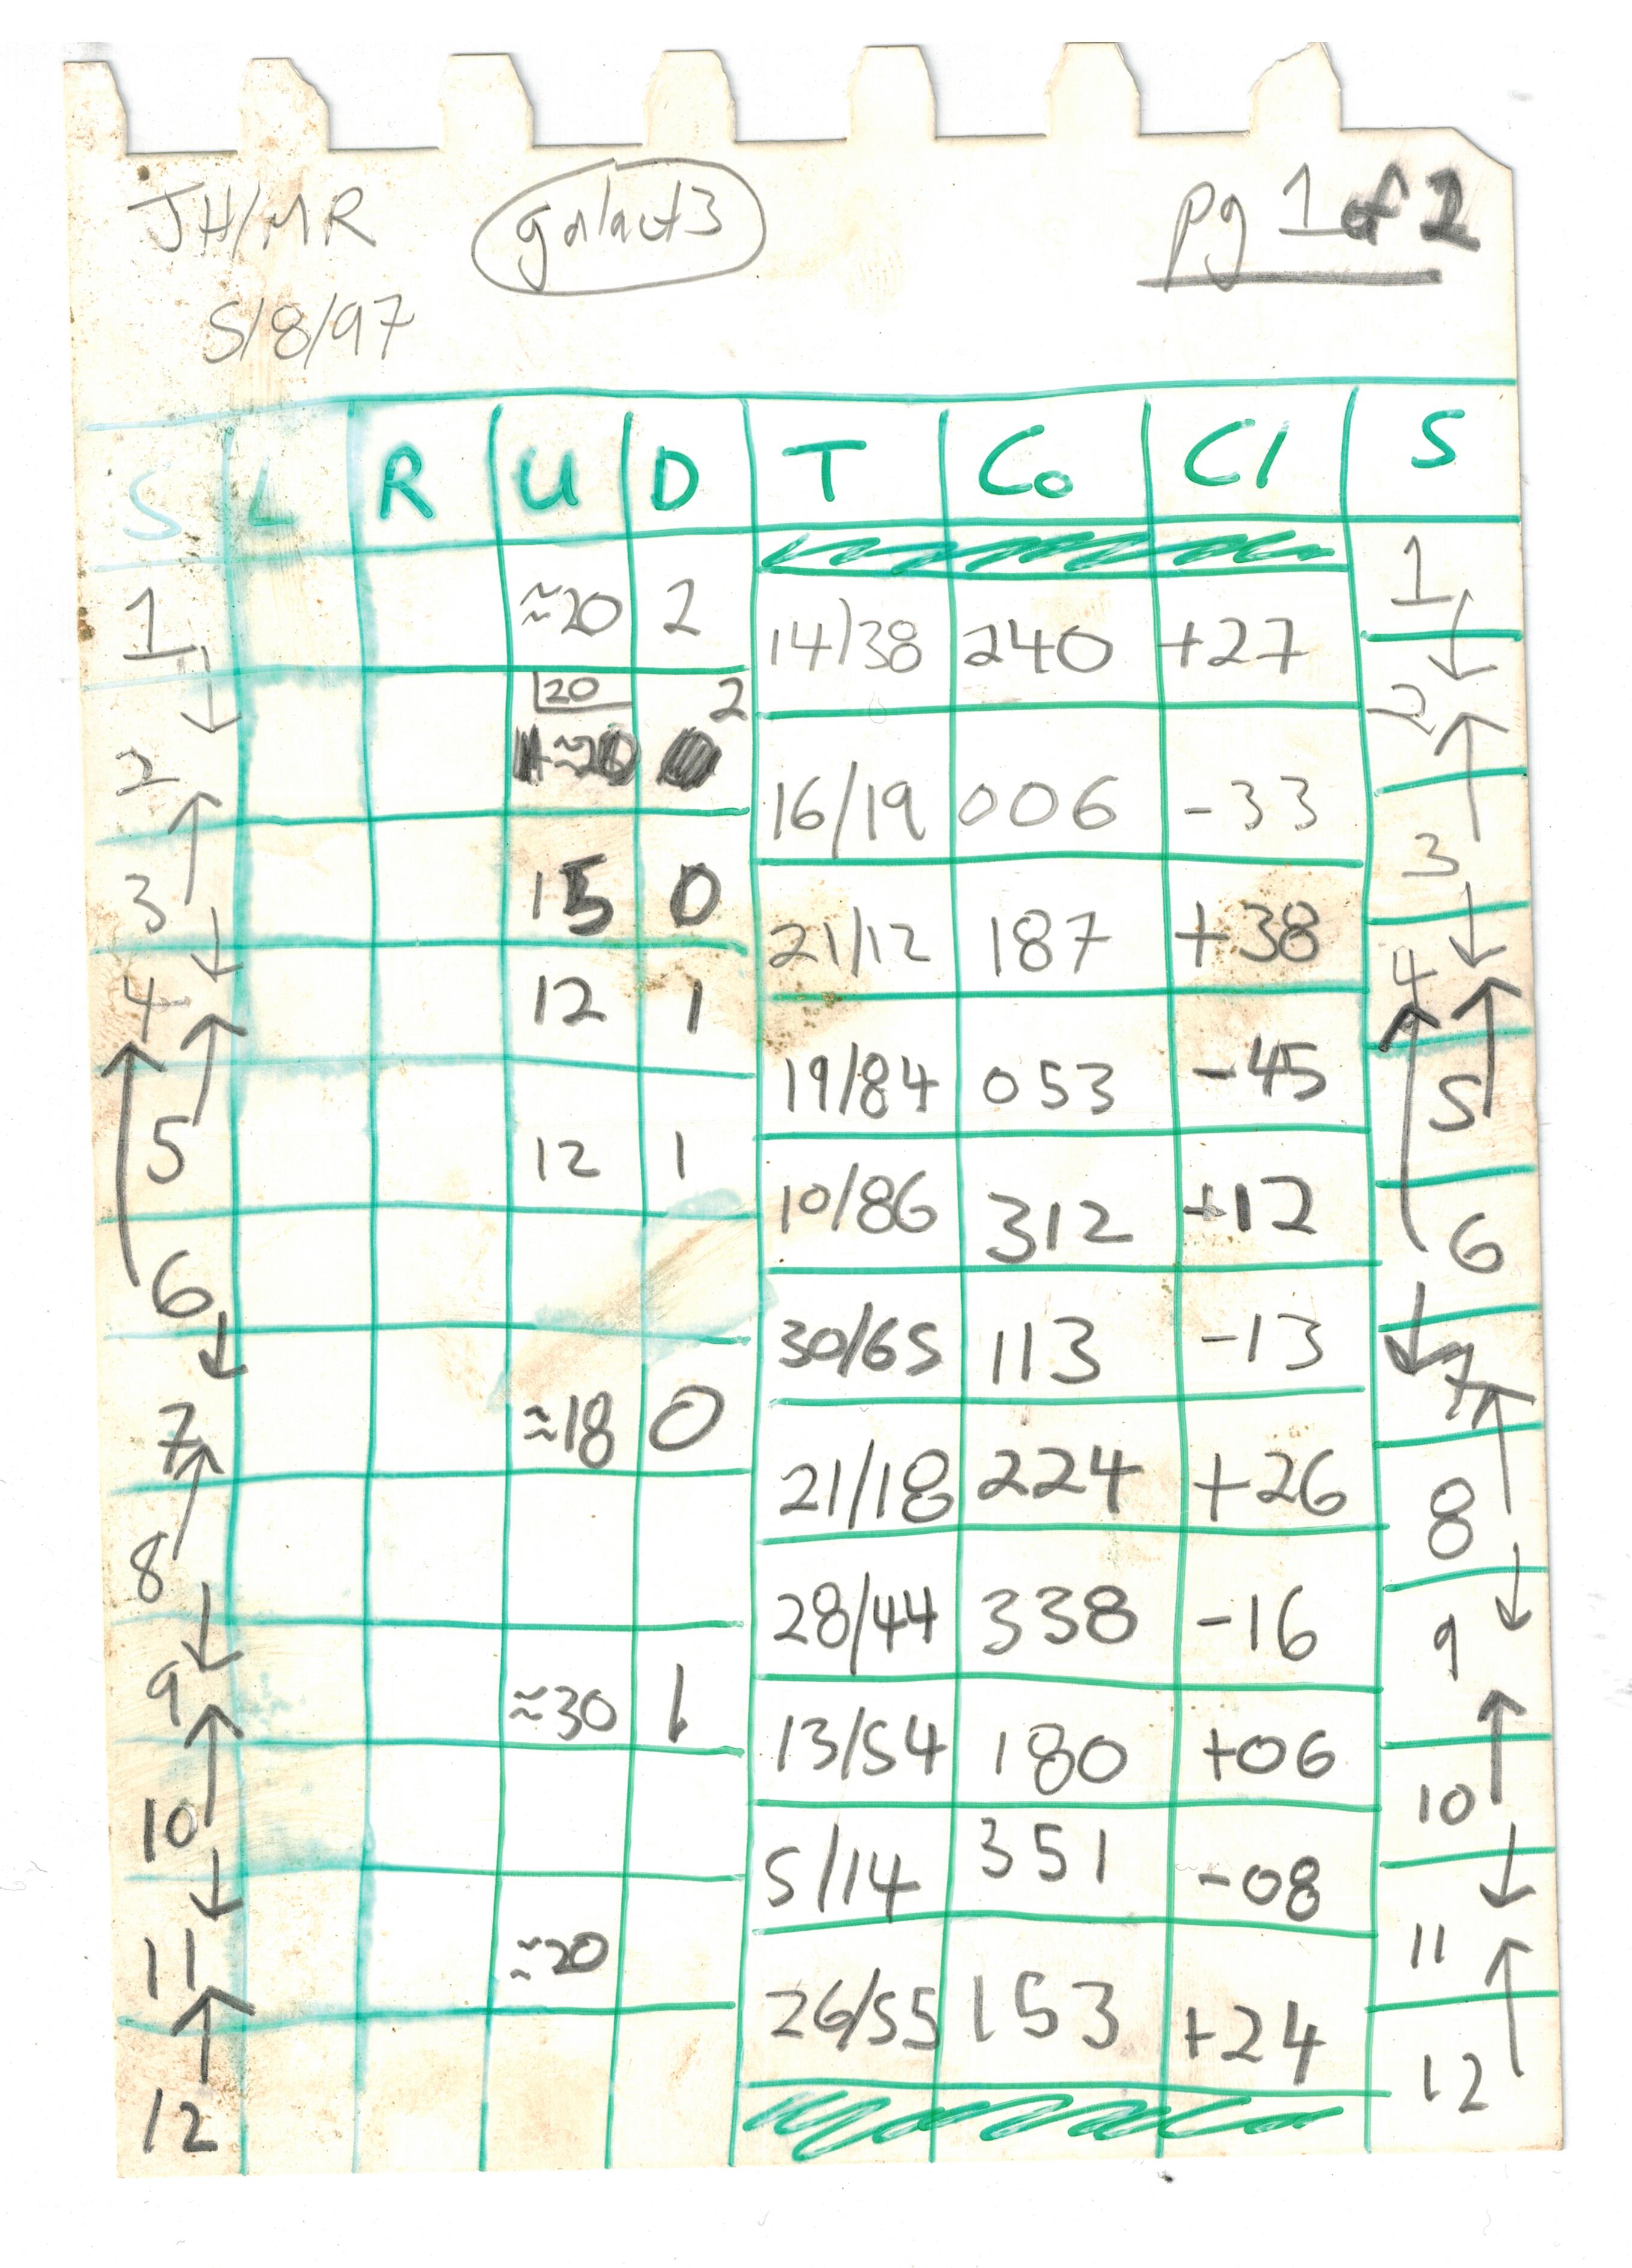 JH/MR galact3 pg 1 of 2
5/8/97
S L R U D T Co Cl S
1 ≈20 2 1
14/38 240 +27
2 20 2 2
≈20
16/19 006 -33
3 15 0 3
21/12 187 +38
4 12 1 4
19/84 053 -45
5 12 1 5
10/86 312 +12
6 6
30/65 113 -13
7 ≈18 0 7
21/18 224 +26
8 8
28/44 338 -16
9 ≈30 1 9
13/54 180 +06
10 10
5/14 351 -08
11 ≈20 11
26/55 153 +24
12 12